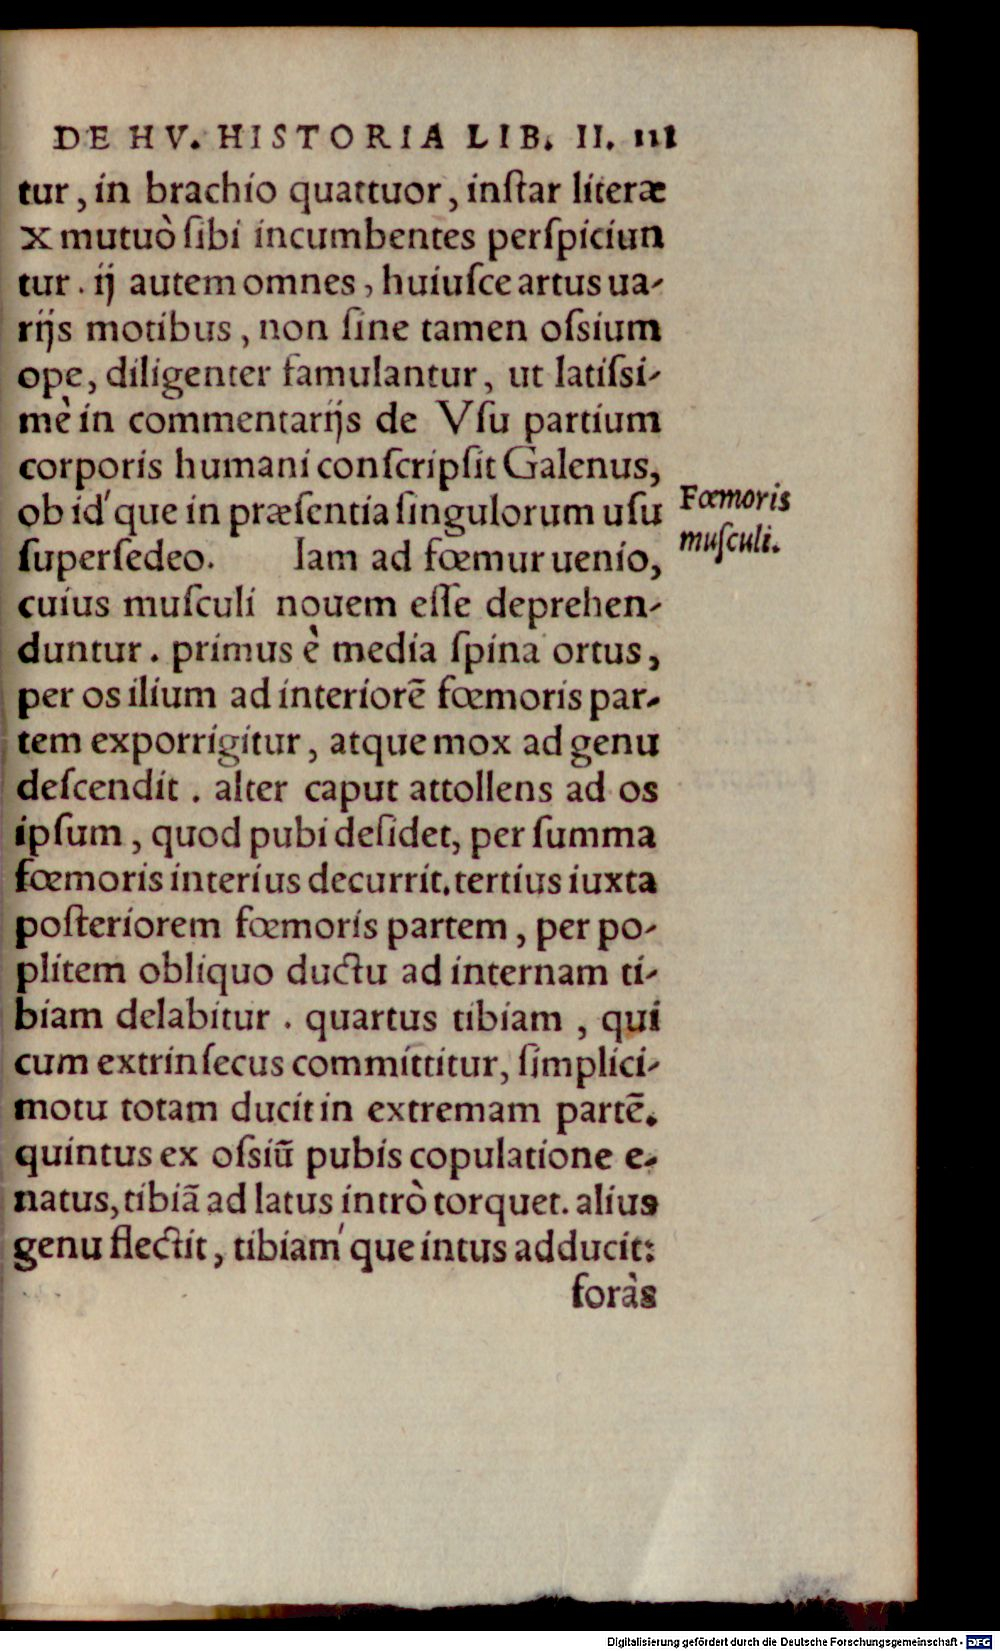 DE HV. HISTORIA LIB. II. 111
tur, in brachio quattuor, inſtar literæ
X mutuò ſibi incumbentes perſpiciun
tur. ij autem omnes, huiuſce artus ua-
rijs motibus, non ſine tamen oſsium
ope, diligenter famulantur, ut latiſsi-
mè in commentarijs de Vſu partium
corporis humani conſcripſit Galenus,
ob id'que in præſentia ſingulorum uſu
ſuperſedeo. Iam ad fœmur uenio,
Fœmoris
muſculi.
cuius muſculi nouem eſſe deprehen-
duntur. primus è media ſpina ortus,
per os ilium ad interiorē fœmoris par-
tem exporrigitur, atque mox ad genu
deſcendit. alter caput attollens ad os
ipſum, quod pubi deſidet, per ſumma
fœmoris interius decurrit. tertius iuxta
poſteriorem fœmoris partem, per po-
plitem obliquo ductu ad internam ti-
biam delabitur. quartus tibiam, qui
cum extrinſecus committitur, ſimplici-
motu totam ducit in extremam partē.
quintus ex oſsiū pubis copulatione e-
natus, tibiā ad latus intrò torquet. alius
genu flectit, tibiam'que intus adducit:
foràs
Digitalisierung gefördert durch die Deutsche Forschungsgemeinschaft - DFG